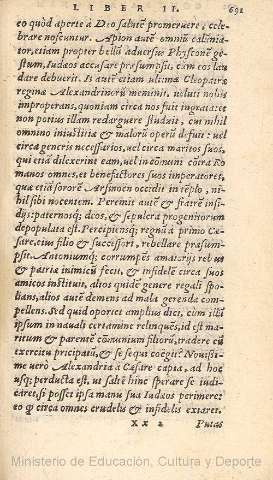 LIBER II. 691
eo quòd apertè à Deo salutē promeruere, cele-
brare noscuntur. Apion autē omniū calūnia-
tor, etiam propter bellū aduersus Phisconē ge-
stum, Iudæos accusare præsumpsit, cum eos lau
dare debuerit. Is autē etiam ultimæ Cleopatræ
reginæ Alexandrinorū meminit, ueluti nobis
improperans, quoniam circa nos fuit ingrata: et
non potius illam redarguere studuit, cui nihil
omnino iniustitiæ & malorū operū defuit: uel
circa generis necessarios, uel circa maritos suos,
qui etiā dilexerint eam, uel in cōmuni cōtra Ro
manos omnes, et benefactores suos imperatores,
quæ etiā sororē Arsinoen occidit in tēplo, ni-
hil sibi nocentem. Peremit autē & fratrē insi-
dijs: paternosq; deos, & sepulcra progenitorum
depopulata est. Percipiensq; regnū à primo Cæ-
sare, eius filio & successori, rebellare præsum-
psit. Antoniumq; corrumpēs amatorijs rebus
& patriæ inimicū fecit, & infidelē circa suos
amicos instituit, alios quidē genere regali spo-
lians, alios autē demens ad mala gerenda compe-
llens. Sed quid oportet amplius dici, cum illū
ipsum in nauali certamine relinquēs, id est ma-
ritum & parentē cōmunium filiorū, tradere cū
exercitu prīcipatū, & se sequi coëgit? Nouissi-
me uero Alexandria à Cæsare capta, ad hoc
usq; perducta est, ut salutē hinc sperare se iudi-
caret, si posset ipsa manu sua Iudæos perimere:
eo q̄ circa omnes crudelis & infidelis extaret.
XX 2 Putas
Ministerio de Educación, Cultura y Deporte